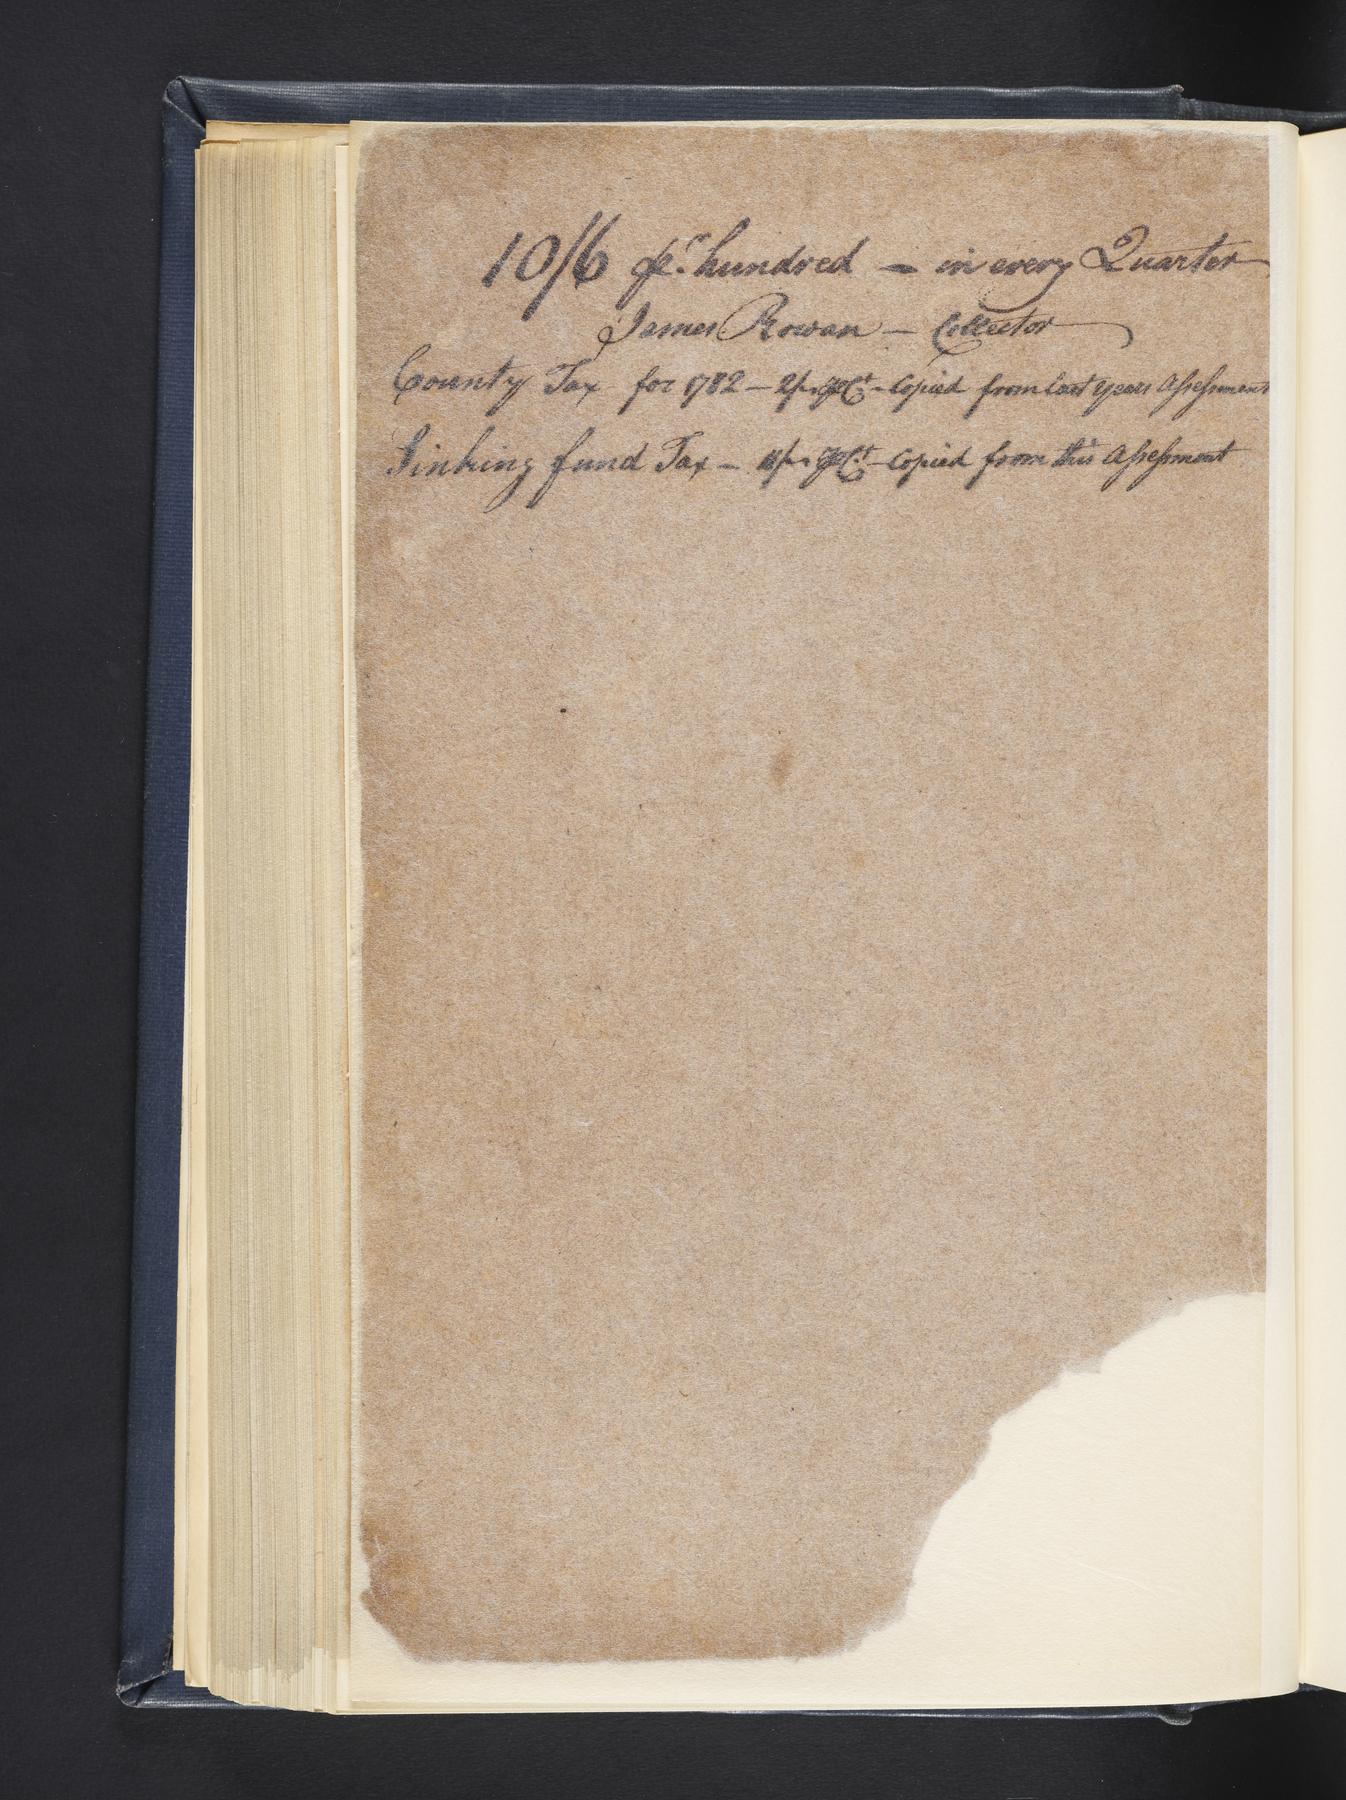 10/6 pr. hundred — in every Quarter
James Rowan — Collector
County Tax for 1782 — 2/- pr Ct - Copied from last years Assessment
Sinking fund Tax — pr Ct - Copied from this Assessment